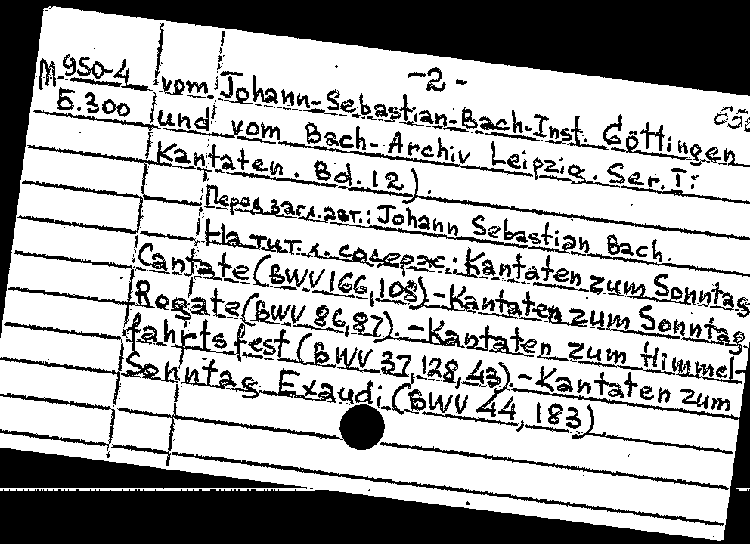 -2-
М 950-4
5.300
vom Johann-Sebastian-Bach-Inst. Göttingen
und vom Bach-Archiv Leipzig. Ser. I:
Kantaten. Bd. 12).
Перед загл. авт.: Johann Sebastian Bach.
На тит. л. содерж.: Kantaten zum Sonntag
Cantate (BWV 166, 108).-Kantaten zum Sonntag
Rogate (BWV 86, 87).-Kantaten zum Himmel-
fahrtsfest (BWV 37, 128, 43).-Kantaten zum
Sonntag Exaudi (BWV 44, 183).